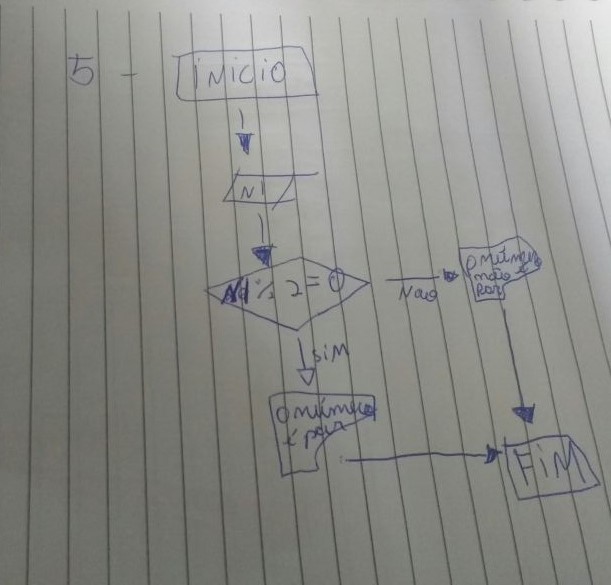 5 - iNiCiO
N1
N1 % 2 = 0
Não
O número
não é
par
SiM
O número
é par
FiM